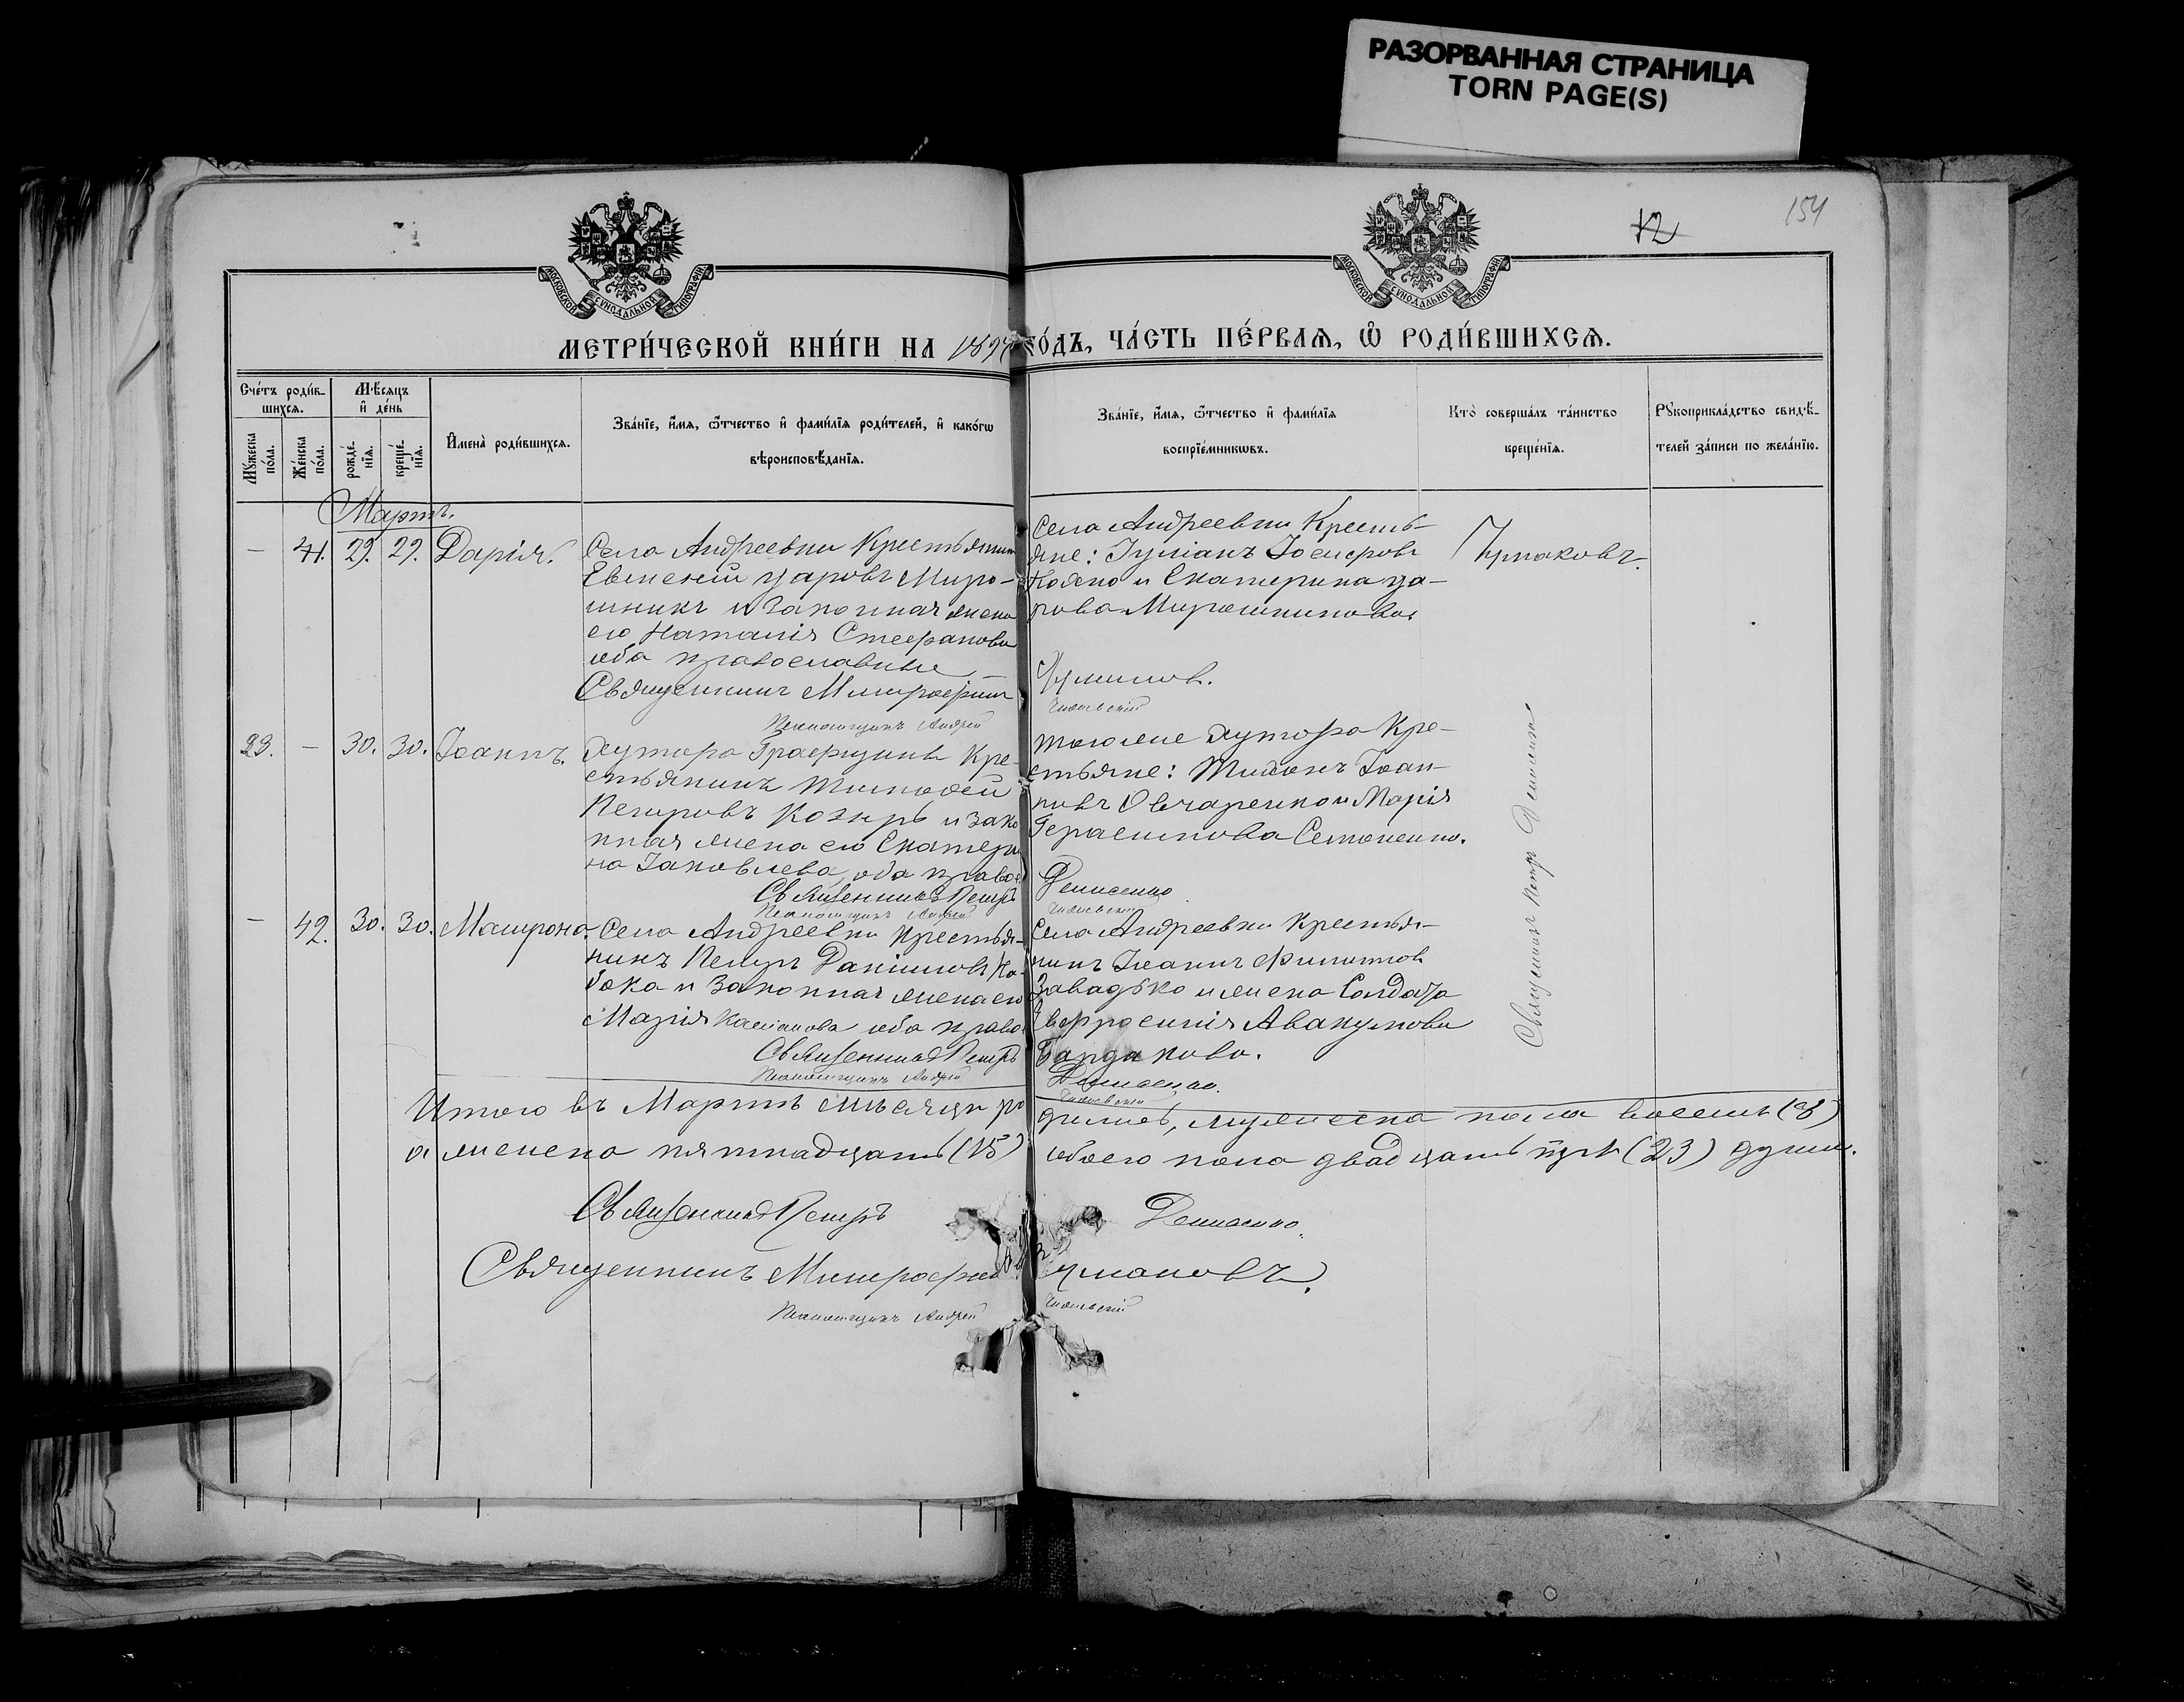 РАЗОРВАННАЯ СТРАНИЦА
TORN PAGE(S)
12
154
МОСКОВСКОЙ СУНОДАЛЬНОЙ ТИПОГРАФІИ
МОСКОВСКОЙ СУНОДАЛЬНОЙ ТИПОГРАФІИ
МЕТРИ́ЧЕСКОЙ КНИ́ГИ НА 1894 ГО́ДЪ, ЧА́СТЬ ПЕ́РВАѦ, Ѡ РОДИ́ВШИХСѦ.
Сче́тъ роди́в-
шихсѧ.
Мѣ́сѧцъ
и де́нь
Мꙋжеска по́ла.
Же́нска по́ла.
рожде́-
нїѧ.
креще́-
нїѧ.
Имена̀ роди́вшихсѧ.
Зва́нїе, и́мѧ, ѻ́тчество и фами́лїѧ роди́телей, и како́гѡ
вѣроисповѣ́данїѧ.
Зва́нїе, и́мѧ, ѻ́тчество и фами́лїѧ
воспрїе́мникѡвъ.
Кто̀ соверша́лъ та́инство
креще́нїѧ.
Рꙋкоприкла́дство свидѣ́-
телей за́писи по жела́нїю.
Мартъ.
— 41. 29. 29. Дарія.
Села Андреевки Крестьянин
Евменій Уаровъ Миро-
шникъ и законная жена
его Наталія Стефанова
оба православные
Священникъ Митрофанъ
Псаломщикъ Андрей
Села Андреевки Кресть-
яне: Іуліанъ Іосифовъ
и Екатерина Уа-
рова Мирошникова
Чумаковъ.
29. — 30. 30. Іоаннъ.
Хутора Крe-
стьянинъ Тимофей
Петровъ Козырь и зако
нная жена его Екатери
на Іаковлева, оба правос
Священникъ Петръ
Псаломщикъ Андрей
того же хутора Кре-
стьяне: Тихонъ Іоан-
новъ Овчаренко и Марія
Герасимова Семоненко.
Денисенко
Священникъ Петръ Денисенко
— 42. 30. 30. Матрона.
Села Андреевки крестья-
нинъ Петръ Даніиловъ Ко-
бока и законная жена его
Марія Касіанова оба право
Священникъ Петръ
Псаломщикъ Андрей
Села Андреевки крестья-
нинъ Іоаннъ Филиппов
Завадько и жена Солдата
Евфросинія Авакумова
Денисенко.
Итого въ Мартѣ мѣсяцѣ ро дилось, мужеска пола восемь (8)
а женска пятнадцать (15) обоего пола двадцать три (23) души.
Священникъ Петръ Денисенко.
Священникъ Митрофанъ Чумаковъ.
Псаломщикъ Андрей